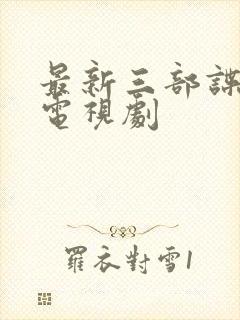 最新三部諜
電視劇
羅衣對雪1